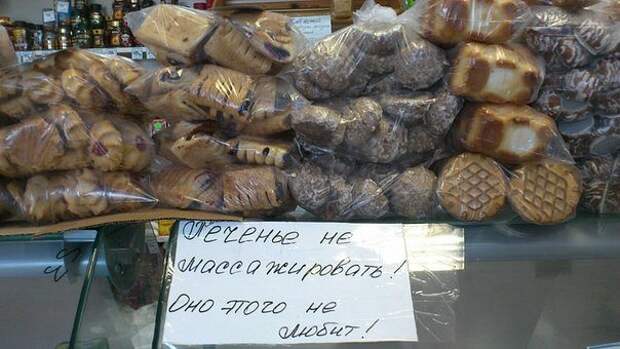 Печенье не
массажировать!
Оно того не
любит!